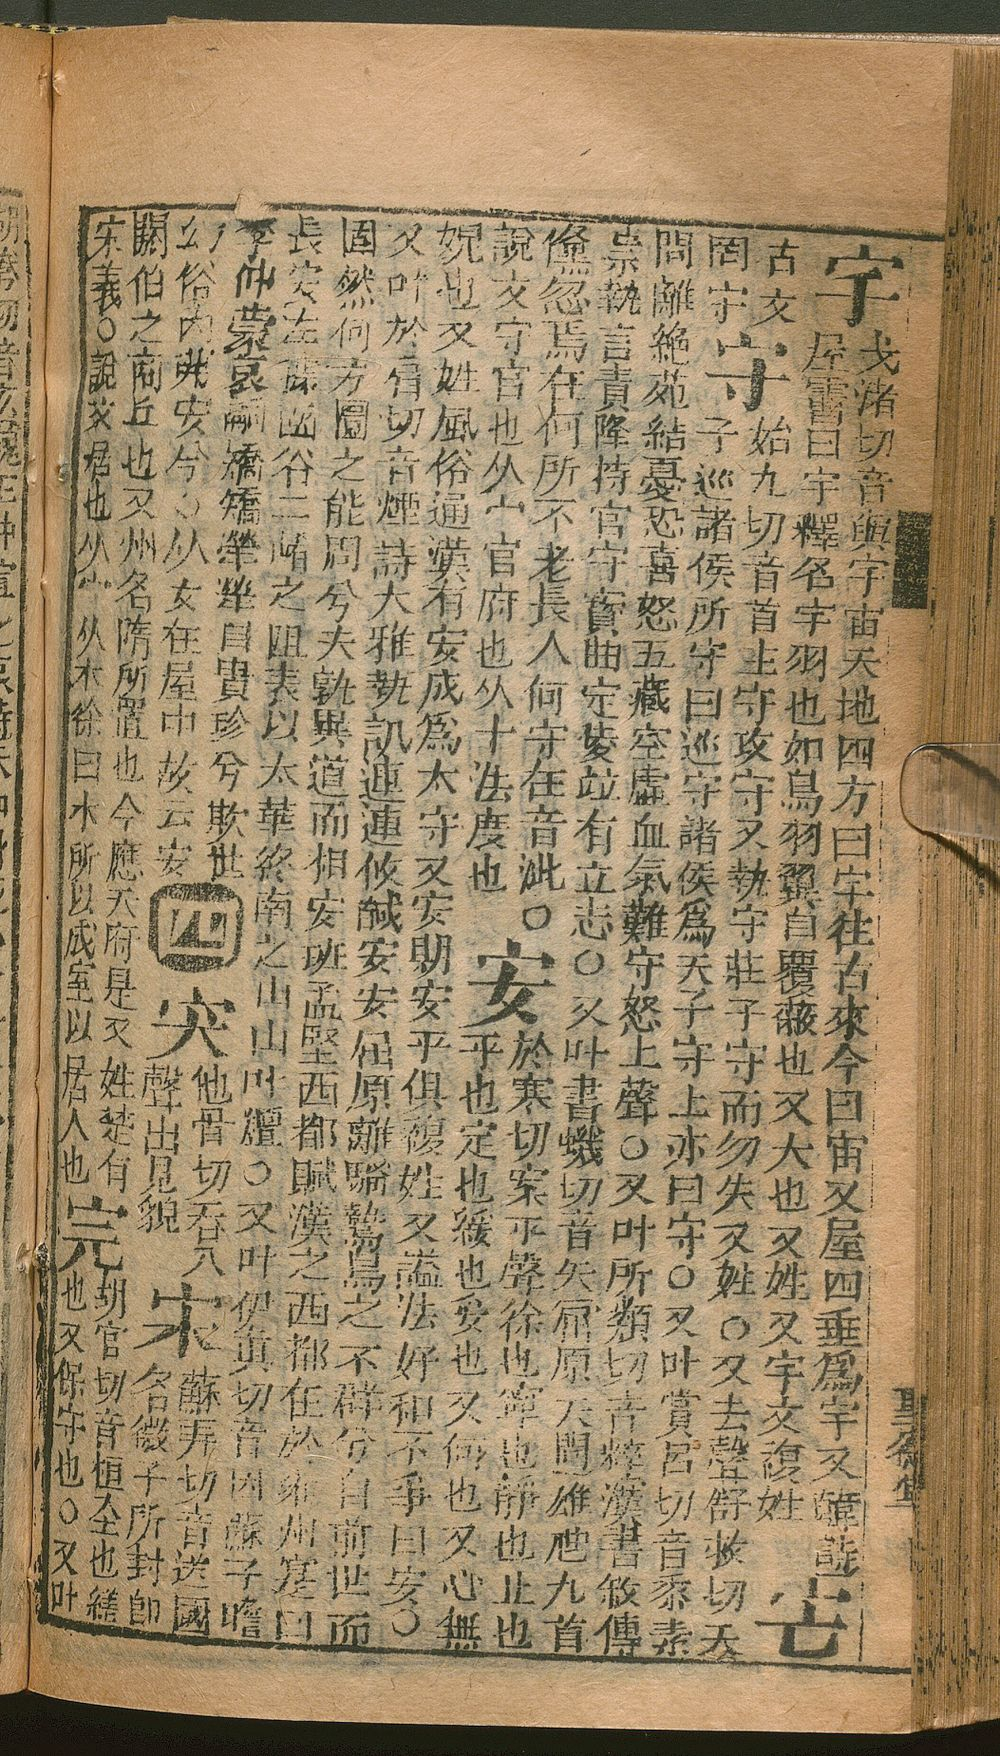 宇
戈渚切音與宇宙天地四方曰宇往古來今曰宙又屋四垂爲宇又
屋霤曰宇釋名宇羽也如鳥羽翼自覆蔽也又大也又姓又宇文複姓
古文
守
始九切音首主守攻守又執守莊子守而勿失又姓○又去聲舒救切天
子巡諸侯所守曰巡守諸侯爲天子守土亦曰守○又叶賞呂切音黍素
問離絶苑結憂恐喜怒五藏空虛血氣難守怒上聲○又叶所類切音
漢書敘傳
崇執言責隆持官守寶曲定陵竝有立志○又叶書蟣切音矢屈原天問雄虺九首
儵忽焉在何所不老長人何守在音泚○
說文守官也从宀官府也从寸法度也
安
於寒切案平聲徐也寧也靜也止也
平也定也緩也妥也又何也又心無
娧也又姓風俗通漢有安成爲太守又安期安平俱複姓又謚法好和不爭曰安○
又叶於肩切音煙詩大雅執訊連連攸馘安安屈原離騷鷙鳥之不群兮自前世而
固然何方圜之能周兮夫孰異道而相安班孟堅西都賦漢之西都在於雍州寔曰
長安左據函谷二崤之阻表以太華終南之山山叶羶○又叶伊眞切音因蘇子瞻
自貴珍兮欺世
幻俗內
安兮○从女在屋中故云安
四
突
他骨切吞入
聲出見貌
宋
蘇弄切音送國
名微子所封卽
閼伯之商丘也又州名隋所置也今應天府是又姓楚有
宋義○說文居也从宀从木徐曰木所以成室以居人也
完
胡官切音桓全也繕
也又保守也○又叶